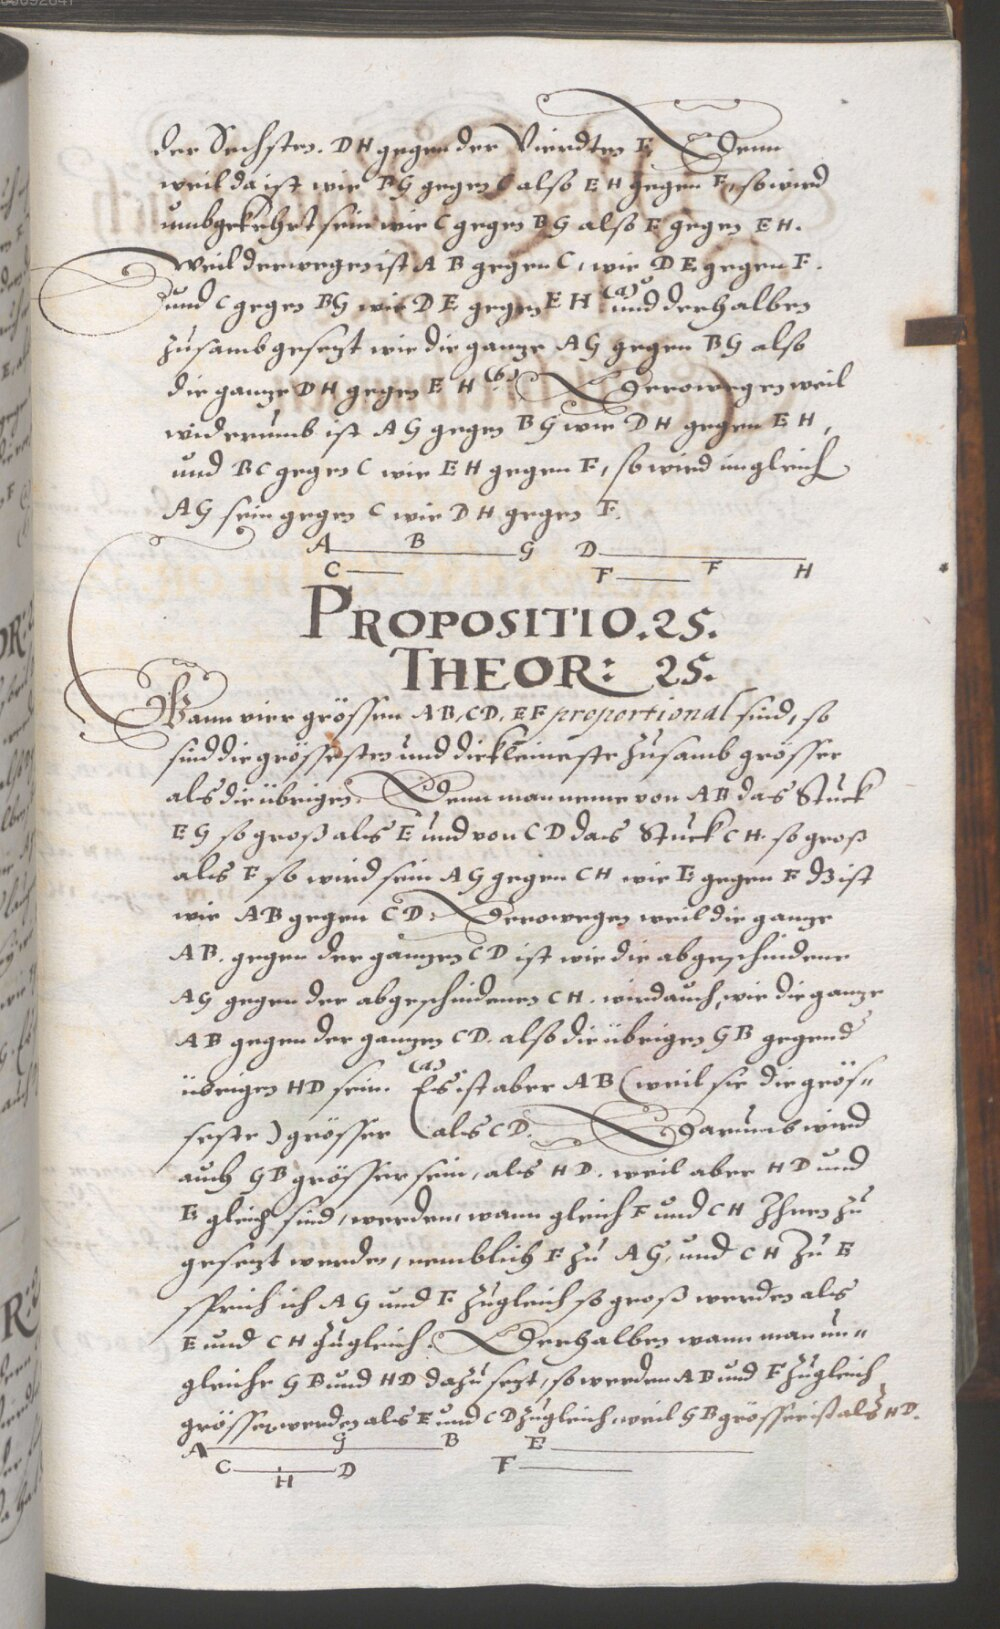 der Sechsten. DH gegen der Vierdten F. Denn
weil da ist wie BG gegen C also EH gegen F, so wird
umbgekehrt sein wie C gegen BG also F gegen EH.
Weil derwegen ist AB gegen C, wie DE gegen F.
und C gegen BG wie DE gegen EH (a) und derhalben
zusamb gesezt wie die ganze AG gegen BG also
die ganze DH gegen EH (b) Derowegen weil
widerumb ist AG gegen BG wie DH gegen EH,
und BC gegen C wie EH gegen F, so wird ingleich
AG sein gegen C wie DH gegen F.
A B G D
C F F H
PROPOSITIO. 25.
THEOR: 25.
Wann vier grössen AB, CD, EF proportional sind, so
sind die grössesten und die kleineste zusamb grösser
als die übrigen. Denn man neme von AB das Stuck
EG so groß als E und von CD das Stuck CH. so groß
als F so wird sein AG gegen CH wie E gegen F dz ist
wie AB gegen CD. Derowegen weil die ganze
AB. gegen der ganzen CD ist wie die abgeschnidene
AG gegen der abgeschnidenen CH. wird auch, wie die ganze
AB gegen der ganzen CD. also die übrigen GB gegen d
übrigen HD sein. (a) Es ist aber AB (weil sie die grös-
seste) grösser als CD. Darumb wird
auch GB grösser sein, als HD. weil aber HD und
E gleich sind, werden, wann gleich F und CH Ihnen zu
gesezt werden, nemblich F zu AG, und CH zu E
sprich ich AG und F. zugleich so groß werden als
E und CH zugleich. Derhalben wann man un-
gleiche GB und HD dazu sezt, so werden AB und F zugleich
grösser werden als E und CD zugleich weil GB grösser ist als HD.
A G B E
C H D F